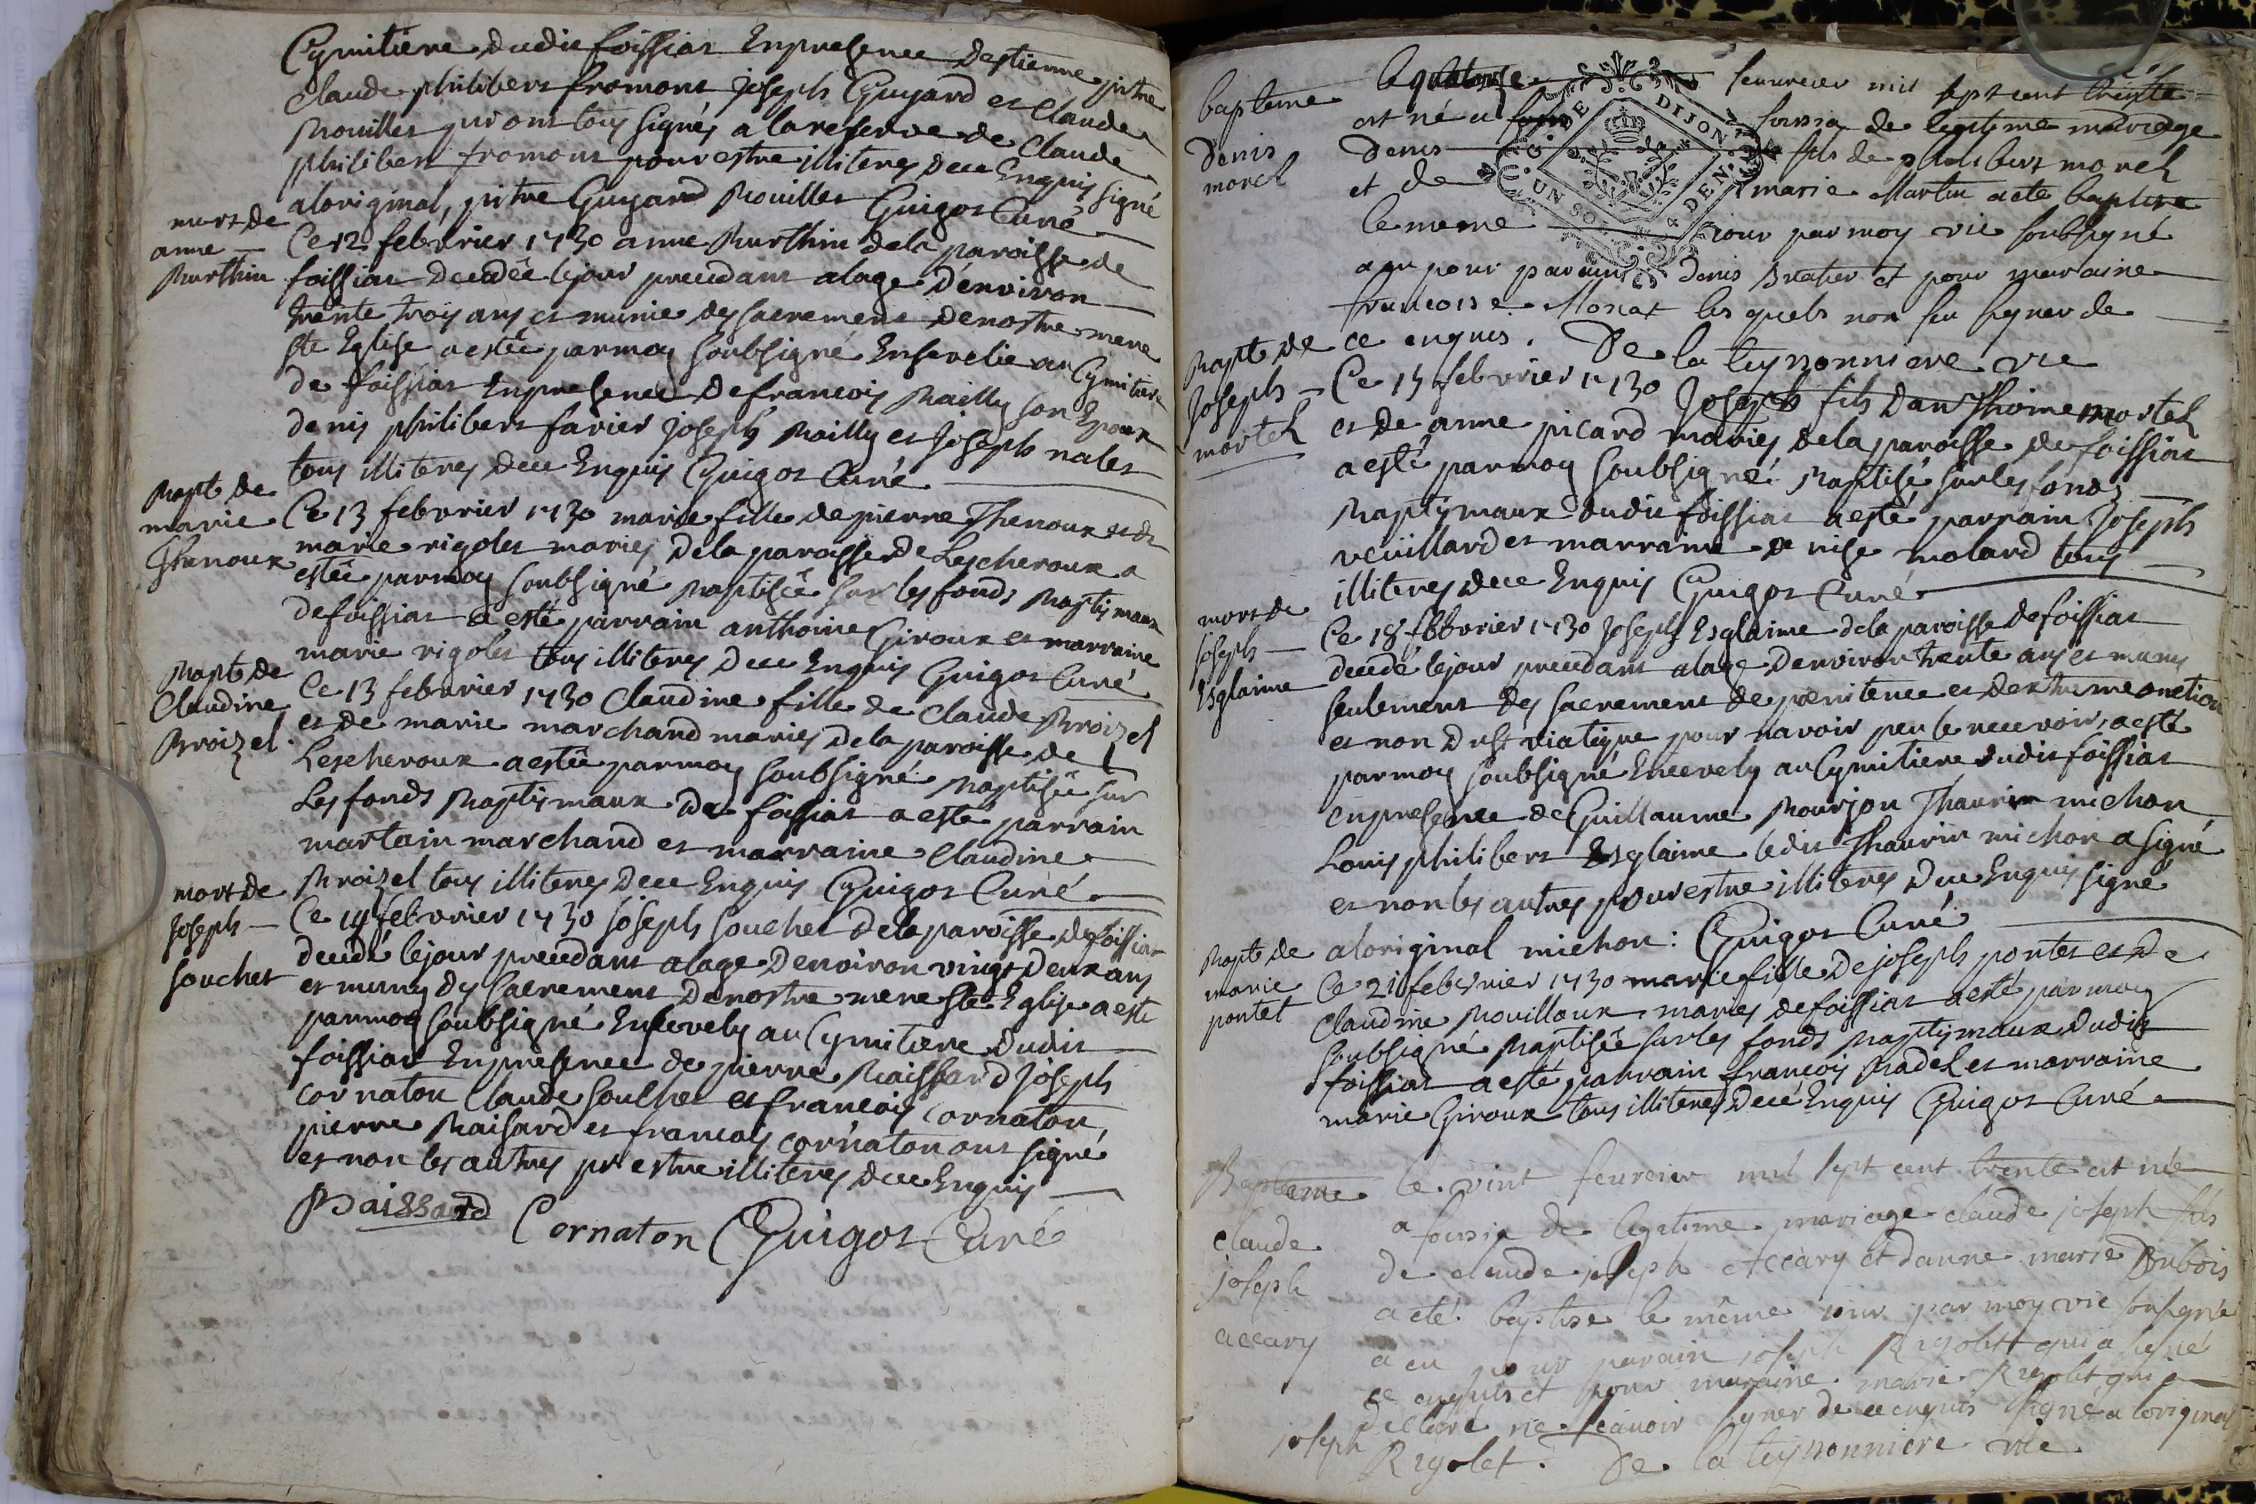 Cymitiere dudit foissiat Enpresence destienne pitre
Claude philibert fromont joseph Guyard et Claude
Mouillet qui ont tous signés a la reserve de Claude
philibert fromont pour estre illiteres dece Enquis signé
aloriginal, pitre Guyard Mouillet Guigot Curé
mort de
anne
Burthin
Ce 12 febvrier 1730 anne Burthin dela paroisse de
foissiat decedée lejour precedant alage d'environ
trente trois ans et munie des sacrement denostre mere
ste Eglise a estée parmoy soubsigné Ensevelie au Cymitiere
de foissiat Enpresence de francois Mailly son Epoux
denis philibert favier joseph Mailly et joseph nalet
tous illiteres dece Enquis Guigot Curé
Bapt de
marie
Thenoux
Ce 13 febvrier 1730 marie fille de pierre Thenoux et de
marie rigolet mariés dela paroisse de Lescheroux a
estée parmoy soubsigné baptisée sur les fonds baptismaux
de foissiat a esté parrain anthoine Giroux et marraine
marie rigolet tous illiteres dece Enquis Guigot Curé
Bapt de
Claudine
Broizel
Ce 13 febvrier 1730 Claudine fille de Claude Broizel
et de marie marchand mariés dela paroisse de
Lescheroux a estée parmoy soubsigné baptisée sur
Les fonds baptismaux de foissiat a esté parrain
martain marchand et marraine Claudine
Broizel tous illiteres dece Enquis Guigot Curé
mort de
joseph
souchet
Ce 14 febvrier 1730 joseph souchet dela paroisse de foissiat
decedé lejour precedant alage denviron vingt deux ans
et muny des sacrement denostre mere ste Eglise a esté
parmoy soubsigné Ensevely au Cymitiere dudit
foissiat Enpresence de pierre Baissard joseph
cornaton Claude soulhet et francois cornaton,
pierre Baisard et francois cornaton ont signé
et non les autres pr estre illiteres dece Enquis
Baissard Cornaton Guigot Curé
bapteme
denis
morel
le quatorse feuvreier mil sept cent trente
est né a foissia de legitime mariage
denis fils de philibert morel
et de marie Martin a ete baptise
le meme jour par moy vic soubsigné
a eu pour parain denis Bratier et pour maraine
francoise Monat les quels non seu signer de
ce enquis. De la teyssonniere vic
Bapt de
joseph
mortel
Ce 15 febvrier 1730 Joseph fils d'anthoine mortel
et de anne picard mariés dela paroisse de foissiat
a esté parmoy soubsigné baptisé sur les fonds
baptismaux dudit foissiat a esté parrain joseph
veuillard et marraine denise molard tous
illiteres dece Enquis Guigot Curé
mort de
joseph
Esglaime
Ce 18 febvrier 1730 joseph Esglaime dela paroisse de foissiat
decedé lejour precedant alage denviron trente ans et muny
seulement des sacrement de poenitence et dextreme onction
et non du st viatique pour navoir peu le recevoir, a esté
parmoy soubsigné Encevely au Cymitiere dudit foissiat
enpresence de Guillaume Mourjon Thaurin michon
Louis philibert Esglaime ledit Thaurin michon a signé
et non les autres pour estre illiteres dece Enquis signé
aloriginal michon: Guigot Curé
Bapt de
marie
pontet
Ce 21 febvrier 1730 marie fille de joseph pontet et de
Claudine Mouilloux mariés de foissiat a esté parmoy
soubsigné baptisée sur les fonds baptismaux dudit
foissiat a esté parrain francois Badel et marraine
marie Giroux tous illiteres dece Enquis Guigot Curé
Bapteme
claude
joseph
accary
le vint feuvreier mil sept cent trente est née
a foissia de legitime mariage claude joseph fils
de claude joseph Accary et danne marie Dubois
a eté baptise le même jour par moy vic sousigné
a eu pour parain joseph Rigolet qui a signé
de enquis et pour maraine marie Rigolet qui a
declaré ne scavoir signer de ce enquis signé a loriginal
joseph Rigolet. De la teyssonniere vic
G. DE DIJON
UN SOL 4 DEN.